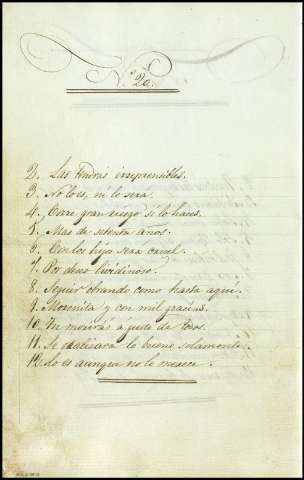 N.º 20.
2. Las tendrás irreprensibles.
3. No lo es, ni lo sera.
4. Corre gran riesgo si lo haces.
5. Mas de setenta años.
6. Con los hijos sera cruel.
7. Por deseo lividinoso.
8. Seguir obrando como hasta aqui.
9. Morenita y con mil gracias.
10. Tu morirás a gusto de todos.
11. Se realisará lo bueno solamente.
12. Lo es aunque no lo merece.